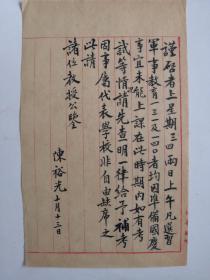 謹啓者上星期三四兩日上午凡選習
軍事教育一三一及一四〇者均因準備國慶
事宜未能上課在此時期内如有考
試等情請先查明一律給予補考
因事屬代表學校非自由缺席之
此請
諸位教授公鑒
陳裕光 十月十三日